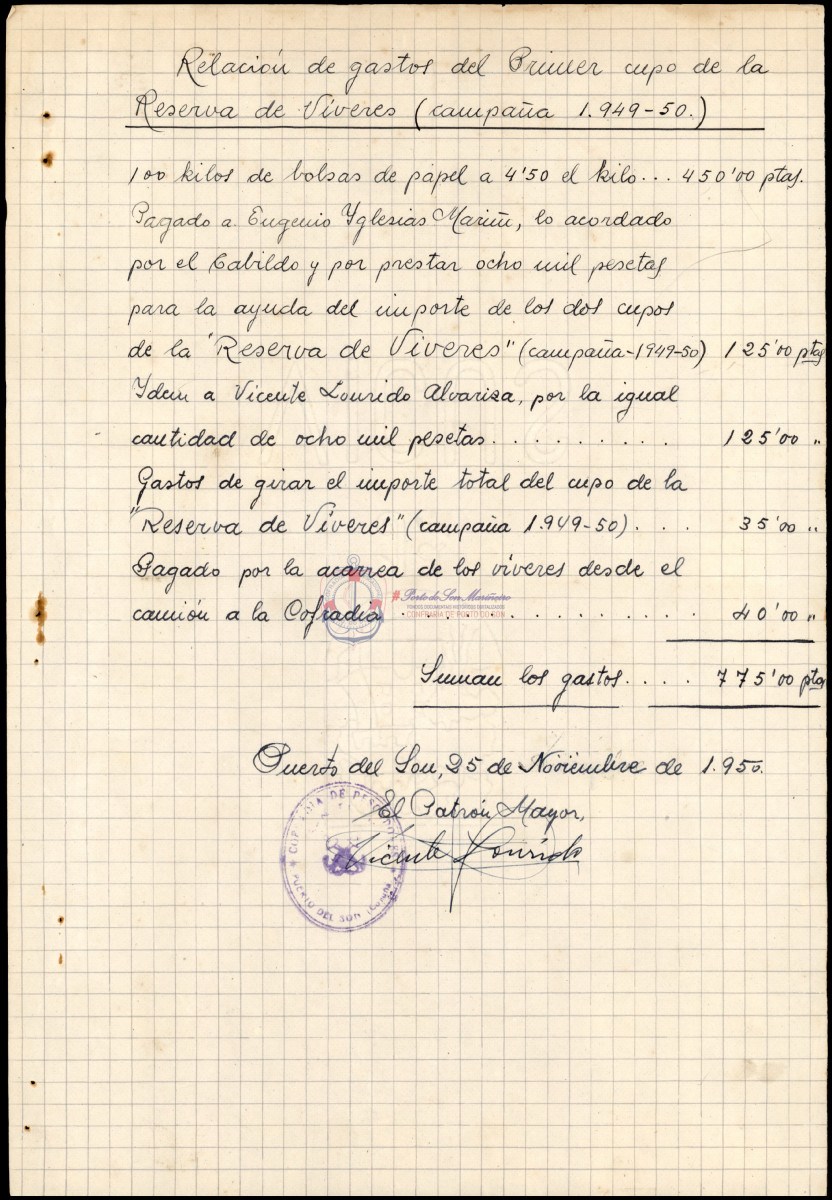 Relación de gastos del Primer cupo de la
Reserva de Víveres (campaña 1.949-50.)
100 kilos de bolsas de papel a 4'50 el kilo... 450'00 ptas.
Pagado a Eugenio Yglesias Mariñ, lo acordado
por el Cabildo y por prestar ocho mil pesetas
para la ayuda del importe de los dos cupos
de la "Reserva de Víveres" (campaña-1949-50) 125'00 ptas
Ydem a Vicente Lourido Alvariza, por la igual
cantidad de ocho mil pesetas.......... 125'00 "
Gastos de girar el importe total del cupo de la
"Reserva de Víveres" (campaña 1.949-50).... 35'00 "
Pagado por la acarrea de los víveres desde el
camión a la Cofradía............. 40'00 "
#Porto do Son Mariñeiro
FONDOS DOCUMENTAIS HISTÓRICOS DIXITALIZADOS
CONFRARÍA DE PORTO DO SON
Suman los gastos..... 775'00 ptas
Puerto del Son, 25 de Noviembre de 1.950.
El Patrón Mayor,
Vicente Lourido
COFRADIA DE PESCADORES
PUERTO DEL SON (CORUÑA)